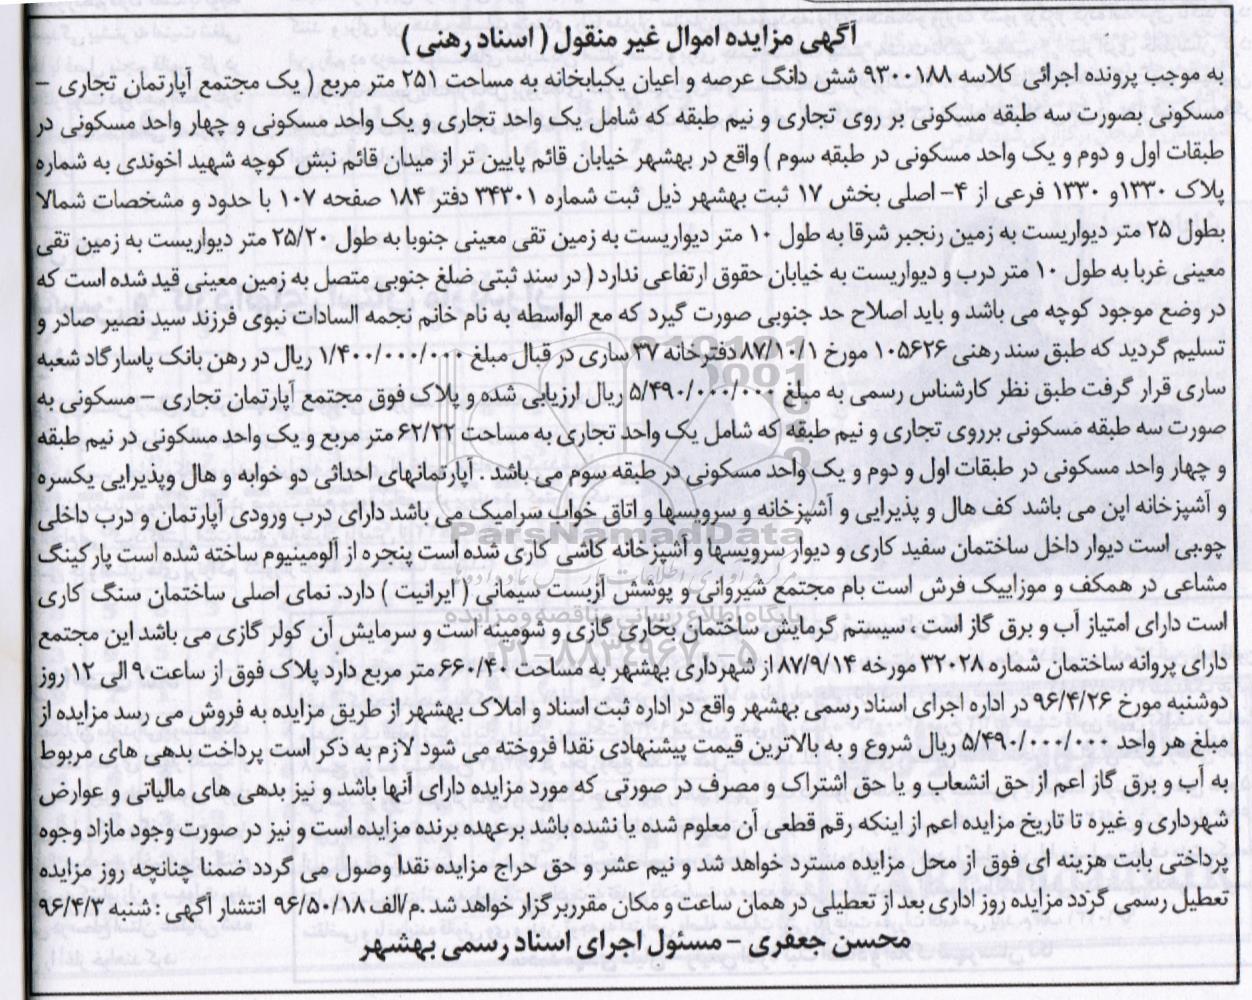 آگهی مزایده اموال غیر منقول ( اسناد رهنی )
به موجب پرونده اجرائی کلاسه ۹۳۰۰۱۸۸ شش دانگ عرصه و اعیان یکبابخانه به مساحت ۲۵۱ متر مربع ( یک مجتمع آپارتمان تجاری –
مسکونی بصورت سه طبقه مسکونی بر روی تجاری و نیم طبقه که شامل یک واحد تجاری و یک واحد مسکونی و چهار واحد مسکونی در
طبقات اول و دوم و یک واحد مسکونی در طبقه سوم ) واقع در بهشهر خیابان قائم پایین تر از میدان قائم نبش کوچه شهید اخوندی به شماره
پلاک ۱۳۳۰و ۱۳۳۰ فرعی از ۴- اصلی بخش ۱۷ ثبت بهشهر ذیل ثبت شماره ۳۴۳۰۱ دفتر ۱۸۴ صفحه ۱۰۷ با حدود و مشخصات شمالا
بطول ۲۵ متر دیواریست به زمین رنجبر شرقا به طول ۱۰ متر دیواریست به زمین تقی معینی جنوبا به طول ۲۵/۲۰ متر دیواریست به زمین تقی
معینی غربا به طول ۱۰ متر درب و دیواریست به خیابان حقوق ارتفاعی ندارد ( در سند ثبتی ضلع جنوبی متصل به زمین معینی قید شده است که
در وضع موجود کوچه می باشد و باید اصلاح حد جنوبی صورت گیرد که مع الواسطه به نام خانم نجمه السادات نبوی فرزند سید نصیر صادر و
تسلیم گردید که طبق سند رهنی ۱۰۵۶۲۶ مورخ ۸۷/۱۰/۱ دفترخانه ۳۷ ساری در قبال مبلغ ۱/۴۰۰/۰۰۰/۰۰۰ ریال در رهن بانک پاسارگاد شعبه
ساری قرار گرفت طبق نظر کارشناس رسمی به مبلغ ۵/۴۹۰/۰۰۰/۰۰۰ ریال ارزیابی شده و پلاک فوق مجتمع آپارتمان تجاری – مسکونی به
صورت سه طبقه مسکونی برروی تجاری و نیم طبقه که شامل یک واحد تجاری به مساحت ۶۲/۲۲ متر مربع و یک واحد مسکونی در نیم طبقه
و چهار واحد مسکونی در طبقات اول و دوم و یک واحد مسکونی در طبقه سوم می باشد . آپارتمانهای احداثی دو خوابه و هال وپذیرایی یکسره
و آشپزخانه اپن می باشد کف هال و پذیرایی و آشپزخانه و سرویسها و اتاق خواب سرامیک می باشد دارای درب ورودی آپارتمان و درب داخلی
چوبی است دیوار داخل ساختمان سفید کاری و دیوار سرویسها و آشپزخانه کاشی کاری شده است پنجره از آلومینیوم ساخته شده است پارکینگ
مشاعی در همکف و موزاییک فرش است بام مجتمع شیروانی و پوشش ازبست سیمانی ( ایرانیت ) دارد. نمای اصلی ساختمان سنگ کاری
است دارای امتیاز آب و برق گاز است . سیستم گرمایش ساختمان بخاری گازی و شومینه است و سرمایش آن کولر گازی می باشد این مجتمع
دارای پروانه ساختمان شماره ۳۲۰۲۸ مورخه ۸۷/۹/۱۴ از شهرداری بهشهر به مساحت ۶۶۰/۴۰ متر مربع دارد پلاک فوق از ساعت ۹ الی ۱۲ روز
دوشنبه مورخ ۹۶/۴/۲۶ در اداره اجرای اسناد رسمی بهشهر واقع در اداره ثبت اسناد و املاک بهشهر از طریق مزایده به فروش می رسد مزایده از
مبلغ هر واحد ۵/۴۹۰/۰۰۰/۰۰۰ ریال شروع و به بالاترین قیمت پیشنهادی نقدا فروخته می شود لازم به ذکر است پرداخت بدهی های مربوط
به آب و برق گاز اعم از حق انشعاب و یا حق اشتراک و مصرف در صورتی که مورد مزایده دارای آنها باشد و نیز بدهی های مالیاتی و عوارض
شهرداری و غیره تا تاریخ مزایده اعم از اینکه رقم قطعی آن معلوم شده یا نشده باشد برعهده برنده مزایده است و نیز در صورت وجود مازاد وجوه
پرداختی بابت هزینه ای فوق از محل مزایده مسترد خواهد شد و نیم عشر و حق حراج مزایده نقدا وصول می گردد ضمنا چنانچه روز مزایده
تعطیل رسمی گردد مزایده روز اداری بعد از تعطیلی در همان ساعت و مکان مقرربرگزار خواهد شد .م/الف ۹۶/۵۰/۱۸ انتشار آگهی : شنبه ۹۶/۴/۳
محسن جعفری – مسئول اجرای اسناد رسمی بهشهر
ParsNamadData
پایگاه اطلاع رسانی مناقصه و مزایده
۰۲۱-۸۸۳۴۹۶۷۰-۵